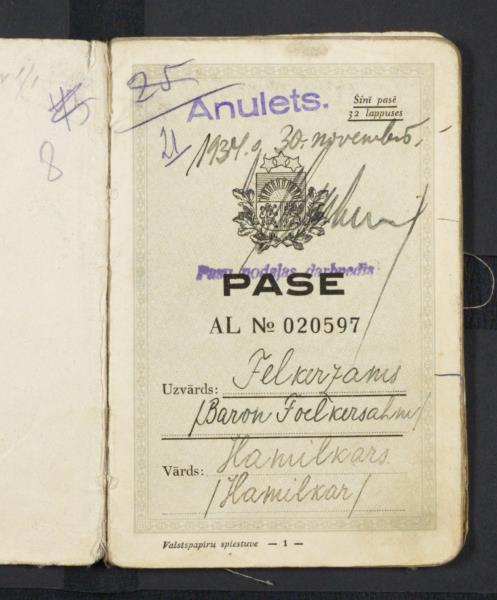 25
Anulets.
21
Šinī pasē
32 lappuses
1934. g. 30. novembrī.
Pasu nodaļas darbvedis
PASE
AL № 020597
Uzvārds: Felkerzams
/Baron Foelkersahm/
Vārds: Hamilkars
/Hamilkar/
Valstspapīru spiestuve — 1 —
8